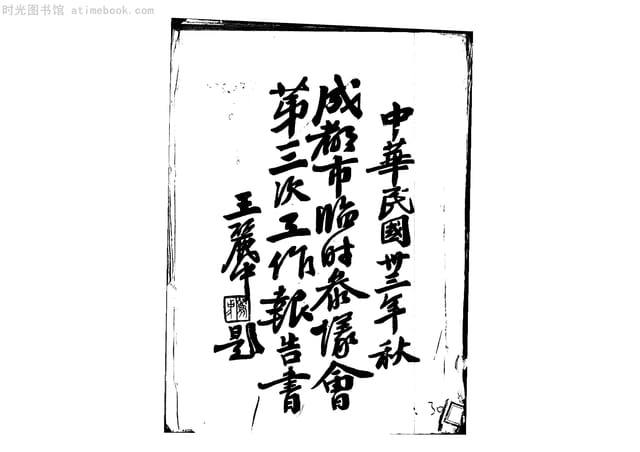 时光图书馆 atimebook.com
中華民國卅三年秋
成都市臨时参議會
第三次工作報告書
王麗中題
30